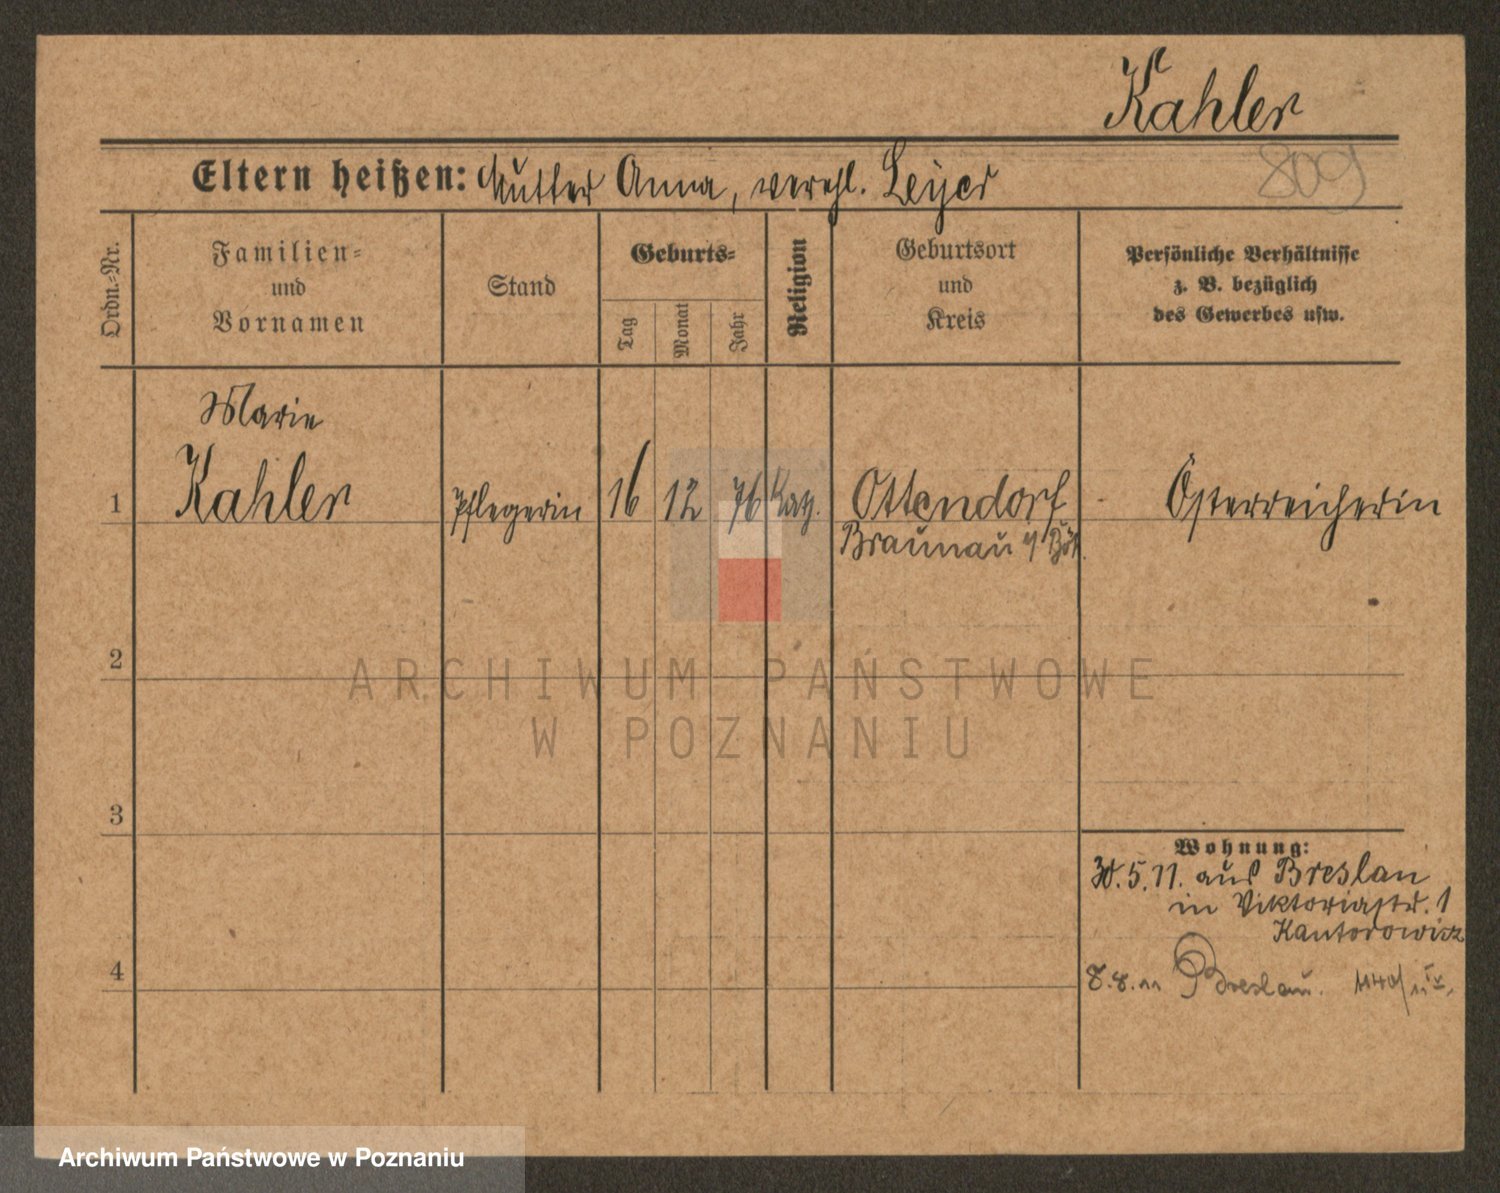 Kahler
809
Eltern heißen: Mutter Anna, verehl. Leyer
Ordn.-Nr.
Familien-
und
Vornamen
Stand
Geburts-
Tag
Monat
Jahr
Religion
Geburtsort
und
Kreis
Persönliche Verhältnisse
z. B. bezüglich
des Gewerbes usw.
Marie
1 Kahler Pflegerin 16 12 76 Kath. Ottendorf - Österreicherin
Braunau i/ Böh.
2
ARCHIWUM PAŃSTWOWE
W POZNANIU
3
Wohnung:
30.5.11. aus Breslau
in Viktoriastr. 1
Kantorowicz
4
8.8.11 Breslau.
Archiwum Państwowe w Poznaniu